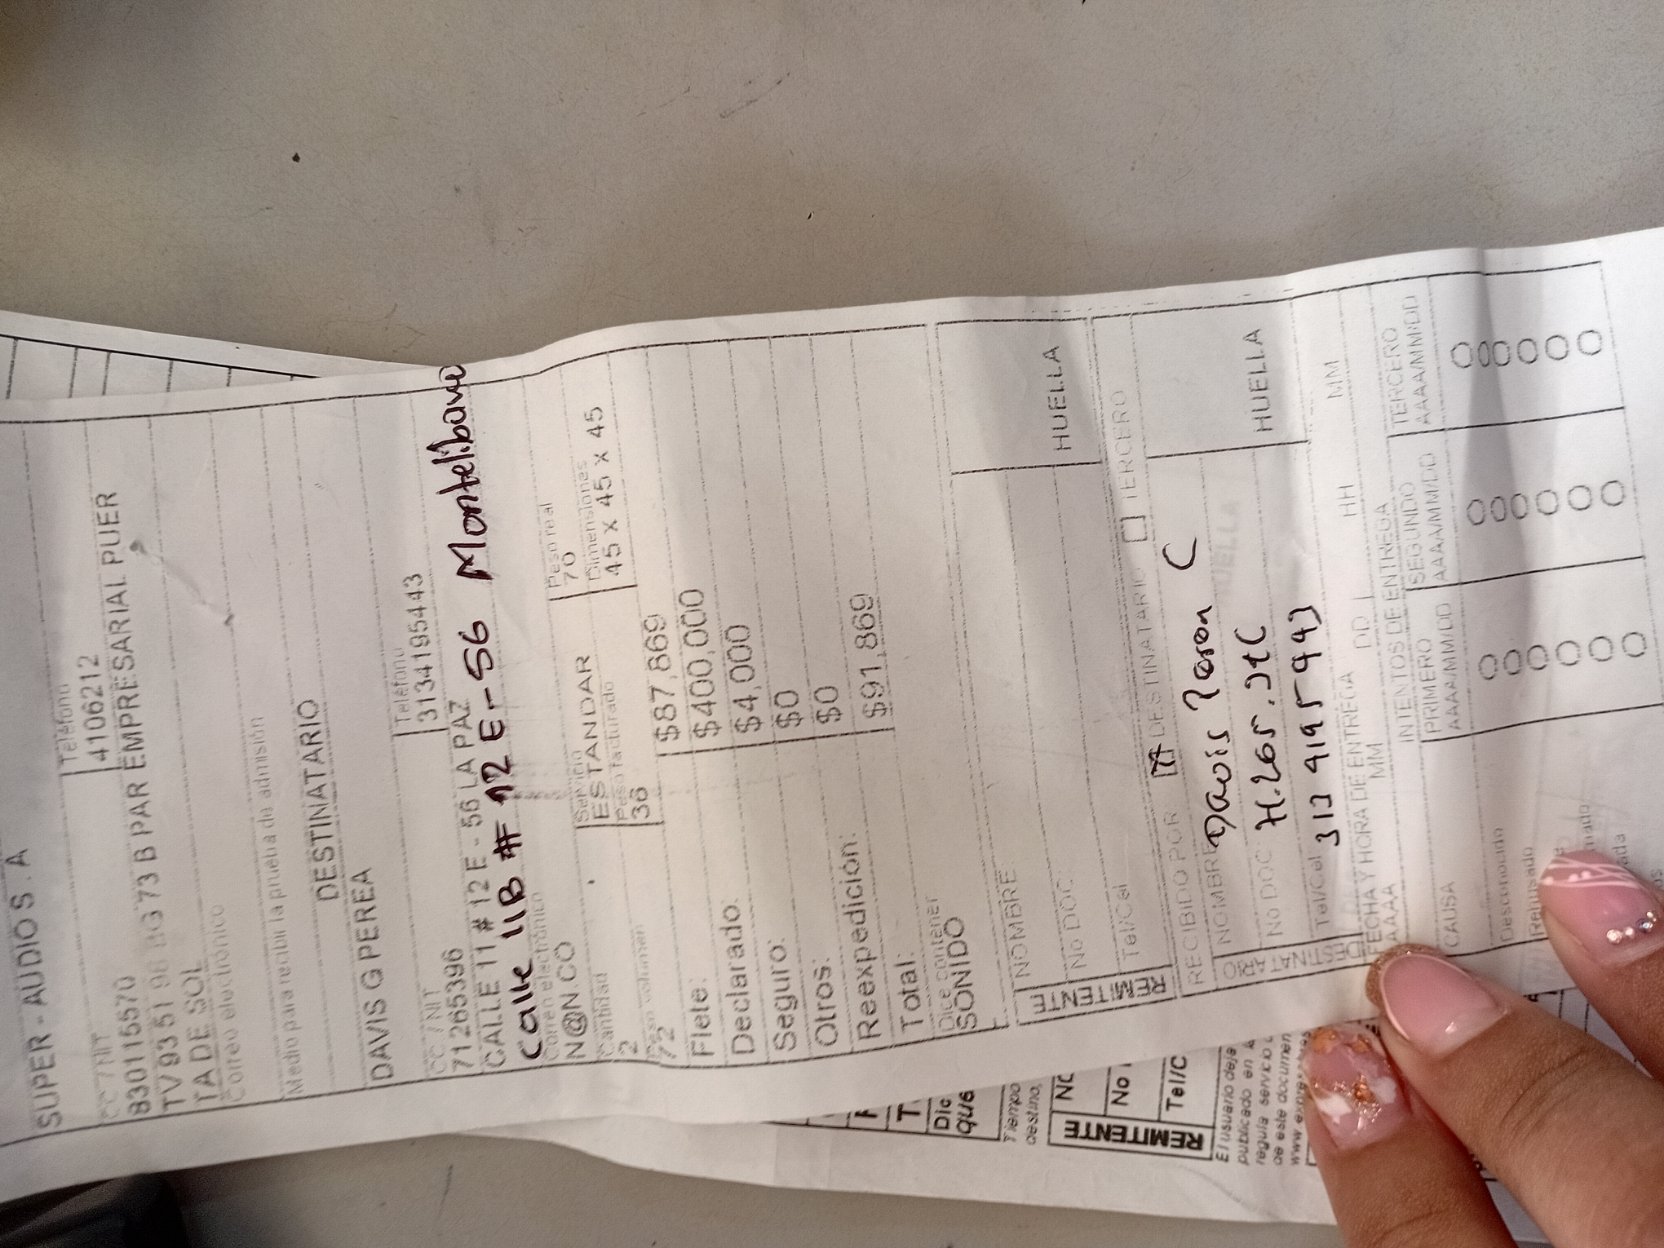 SUPER - AUDIOS . A
CC / NIT
Teléfono
830115570
4106212
TV 93 51 98 BG 73 B PAR EMPRESARIAL PUER
TA DE SOL
Correo electrónico
Medio para recibir la prueba de admisión
DESTINATARIO
DAVIS G PEREA
CC / NIT
Teléfono
71265396
3134195443
CALLE 11 # 12 E - 56 LA PAZ
Calle 11B # 12 E-56 Montelibano
Correo electrónico
N@N.CO
Cantidad
Servicio
Peso real
2
ESTANDAR
70
Peso volumen
Peso facturado
Dimensiones
72
36
45 x 45 x 45
Flete:
$87,869
Declarado:
$400,000
Seguro:
$4,000
Otros:
$0
Reexpedición:
$0
Total:
$91,869
Dice contener
SONIDO
REMITENTE
NOMBRE
No DOC
Tel/Cel
HUELLA
RECIBIDO POR
DESTINATARIO
TERCERO
DESTINATARIO
NOMBRE
Davis
C
No DOC
Tel/Cel
HUELLA
FECHA Y HORA DE ENTREGA
AAAA
MM
DD
HH
MM
INTENTOS DE ENTREGA
CAUSA
PRIMERO
SEGUNDO
TERCERO
AAAA/MM/DD
AAAA/MM/DD
AAAA/MM/DD
Desconocido
Rehusado
REMITENTE
No
Tel/C
Tiempo
destino,
El usuario deja
publicado en
regula servicio
de este documen